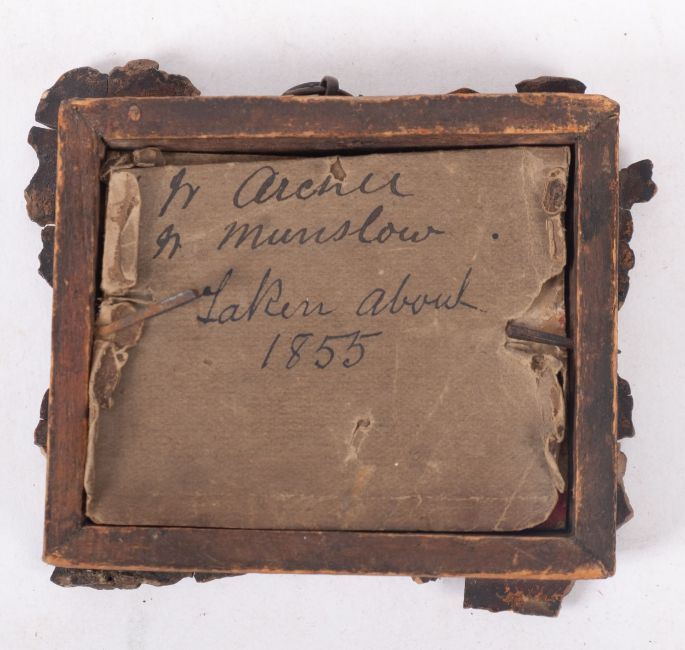 W Archer
W Munslow .
Taken about
1855